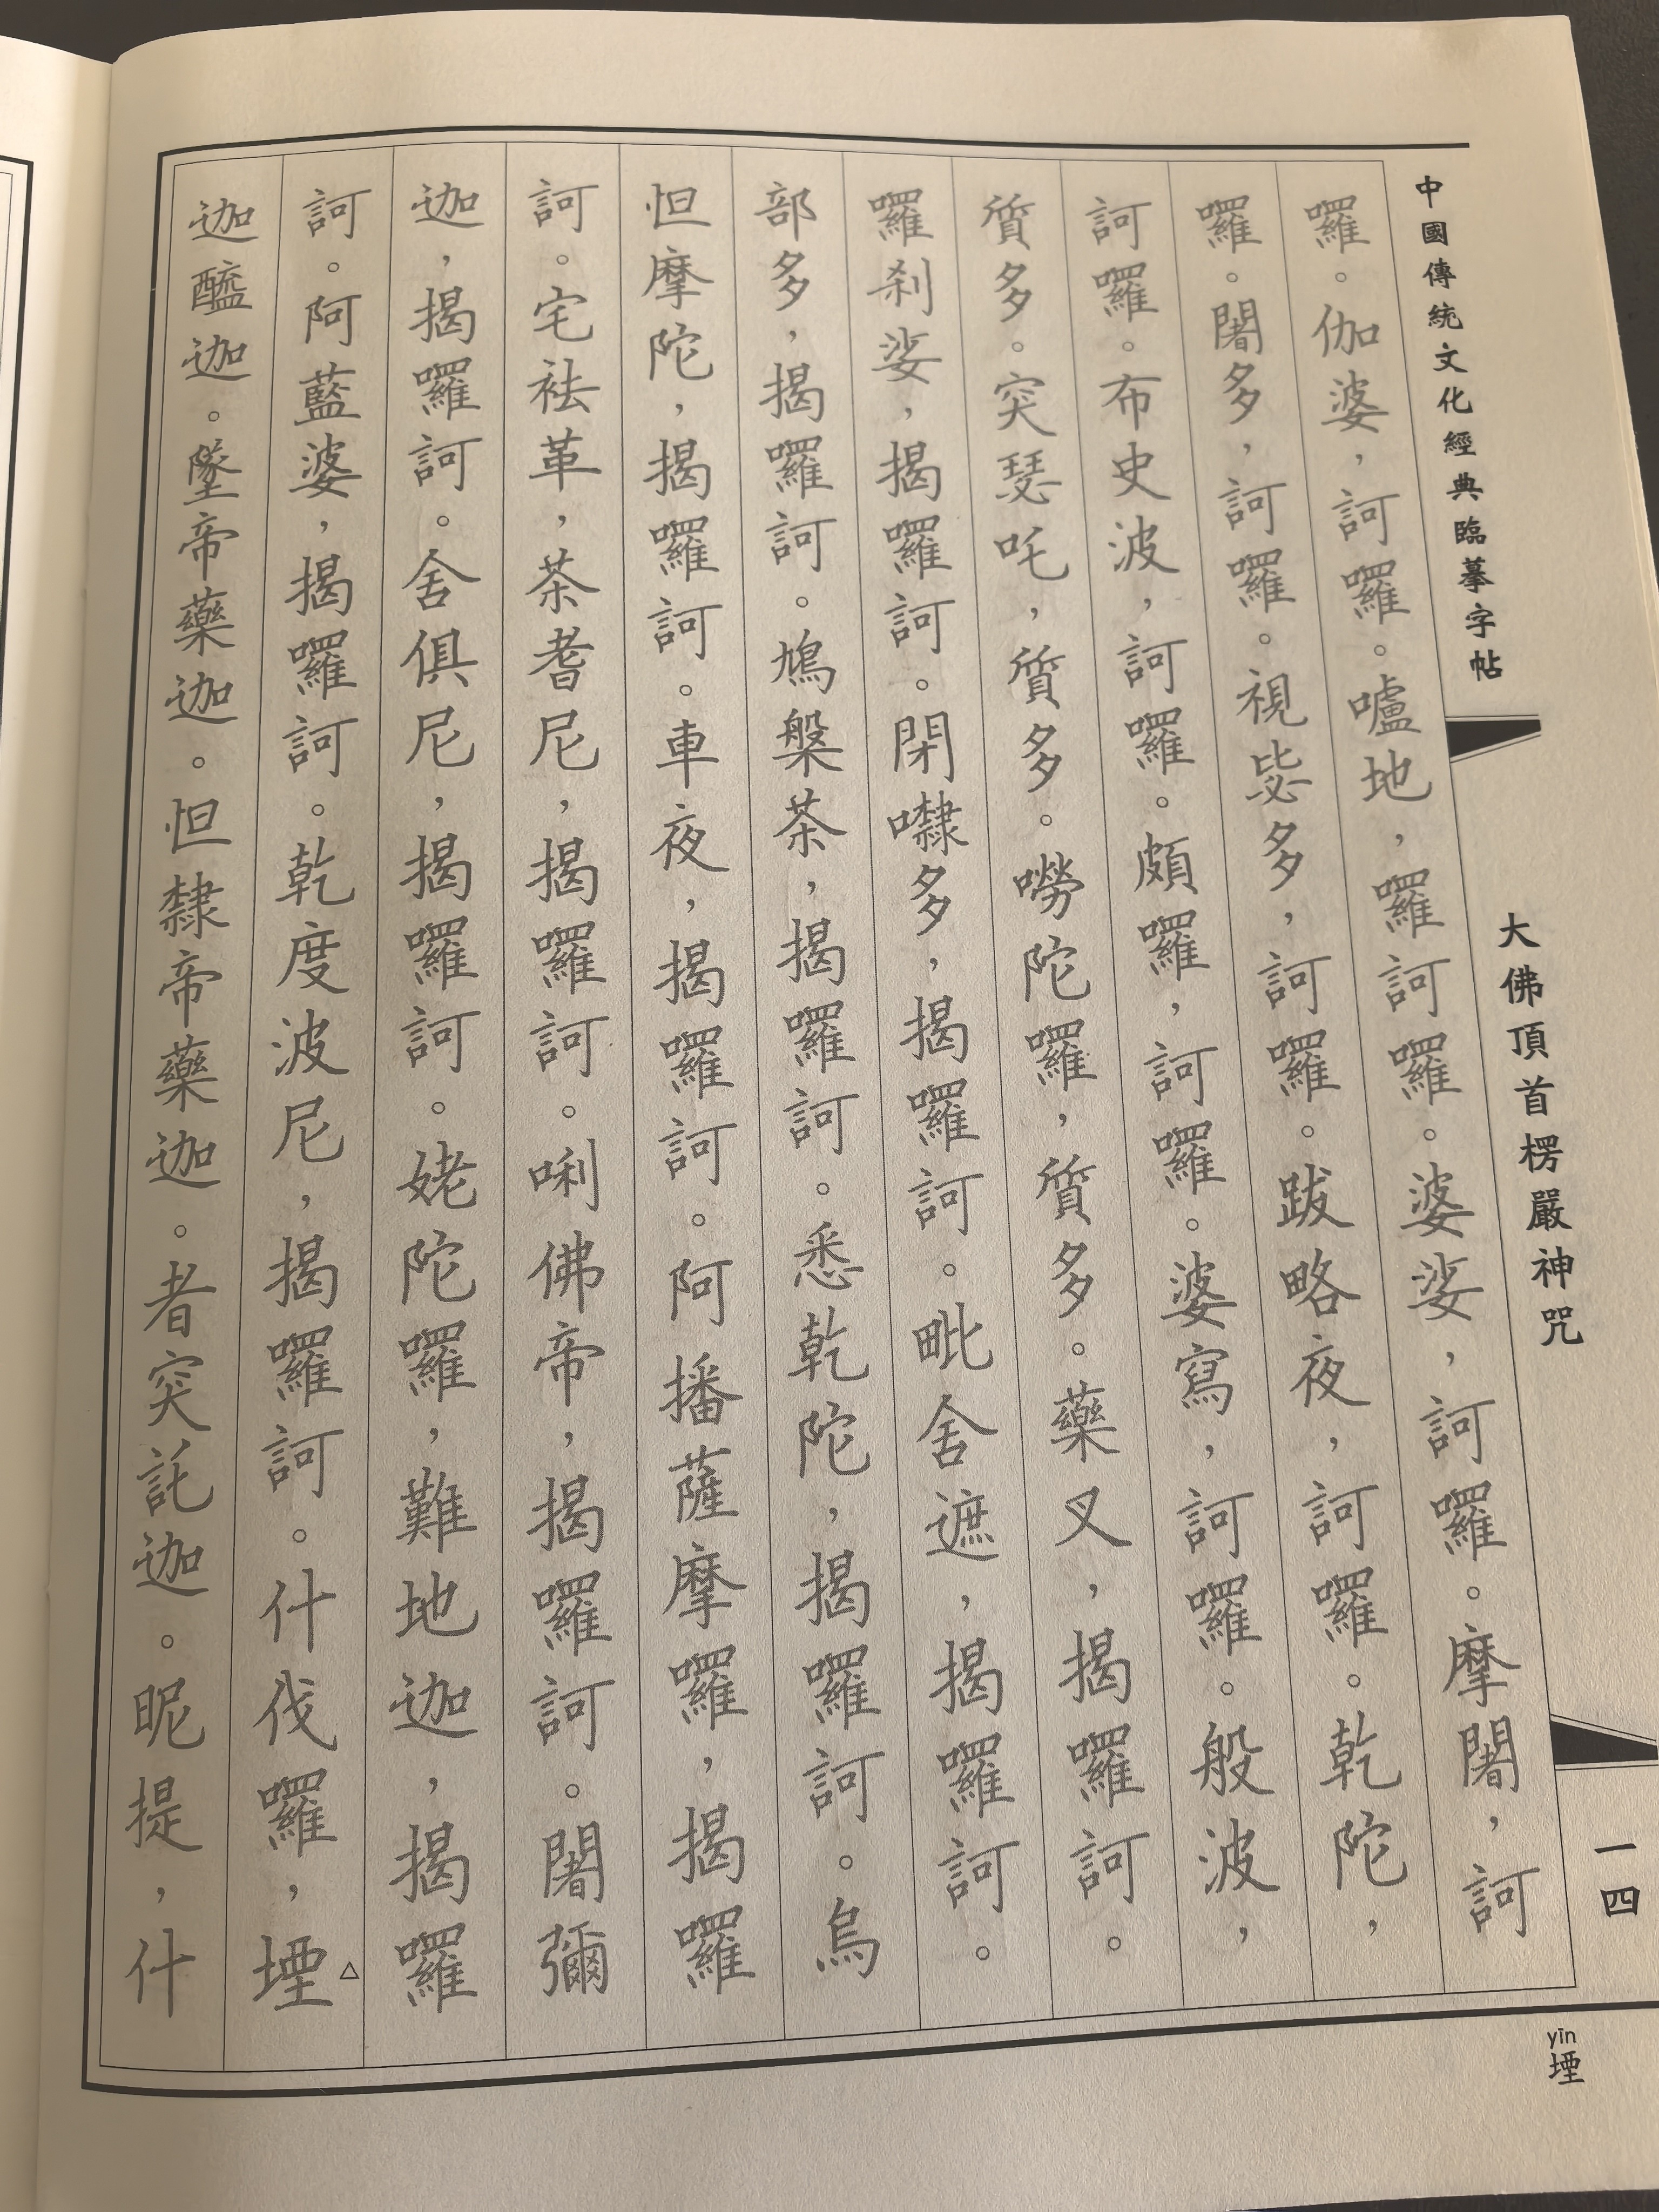 中國傳統文化經典臨摹字帖
大佛頂首楞嚴神咒
一四
囉。伽婆，訶囉。嚧地，囉訶囉。婆娑，訶囉。摩闍，訶
囉。闍多，訶囉。視毖多，訶囉。跋略夜，訶囉。乾陀，
訶囉。布史波，訶囉。頗囉，訶囉。婆寫，訶囉。般波，
質多。突瑟吒，質多。嘮陀囉，質多。藥叉，揭囉訶。
囉剎娑，揭囉訶。閉㘑多，揭囉訶。毗舍遮，揭囉訶。
部多，揭囉訶。鳩槃茶，揭囉訶。悉乾陀，揭囉訶。烏
怛摩陀，揭囉訶。車夜，揭囉訶。阿播薩摩囉，揭囉
訶。宅袪革，茶耆尼，揭囉訶。唎佛帝，揭囉訶。闍彌
迦，揭囉訶。舍俱尼，揭囉訶。姥陀囉，難地迦，揭囉
訶。阿藍婆，揭囉訶。乾度波尼，揭囉訶。什伐囉，堙△
迦醯迦。墜帝藥迦。怛隸帝藥迦。者突託迦。昵提，什
yīn
堙